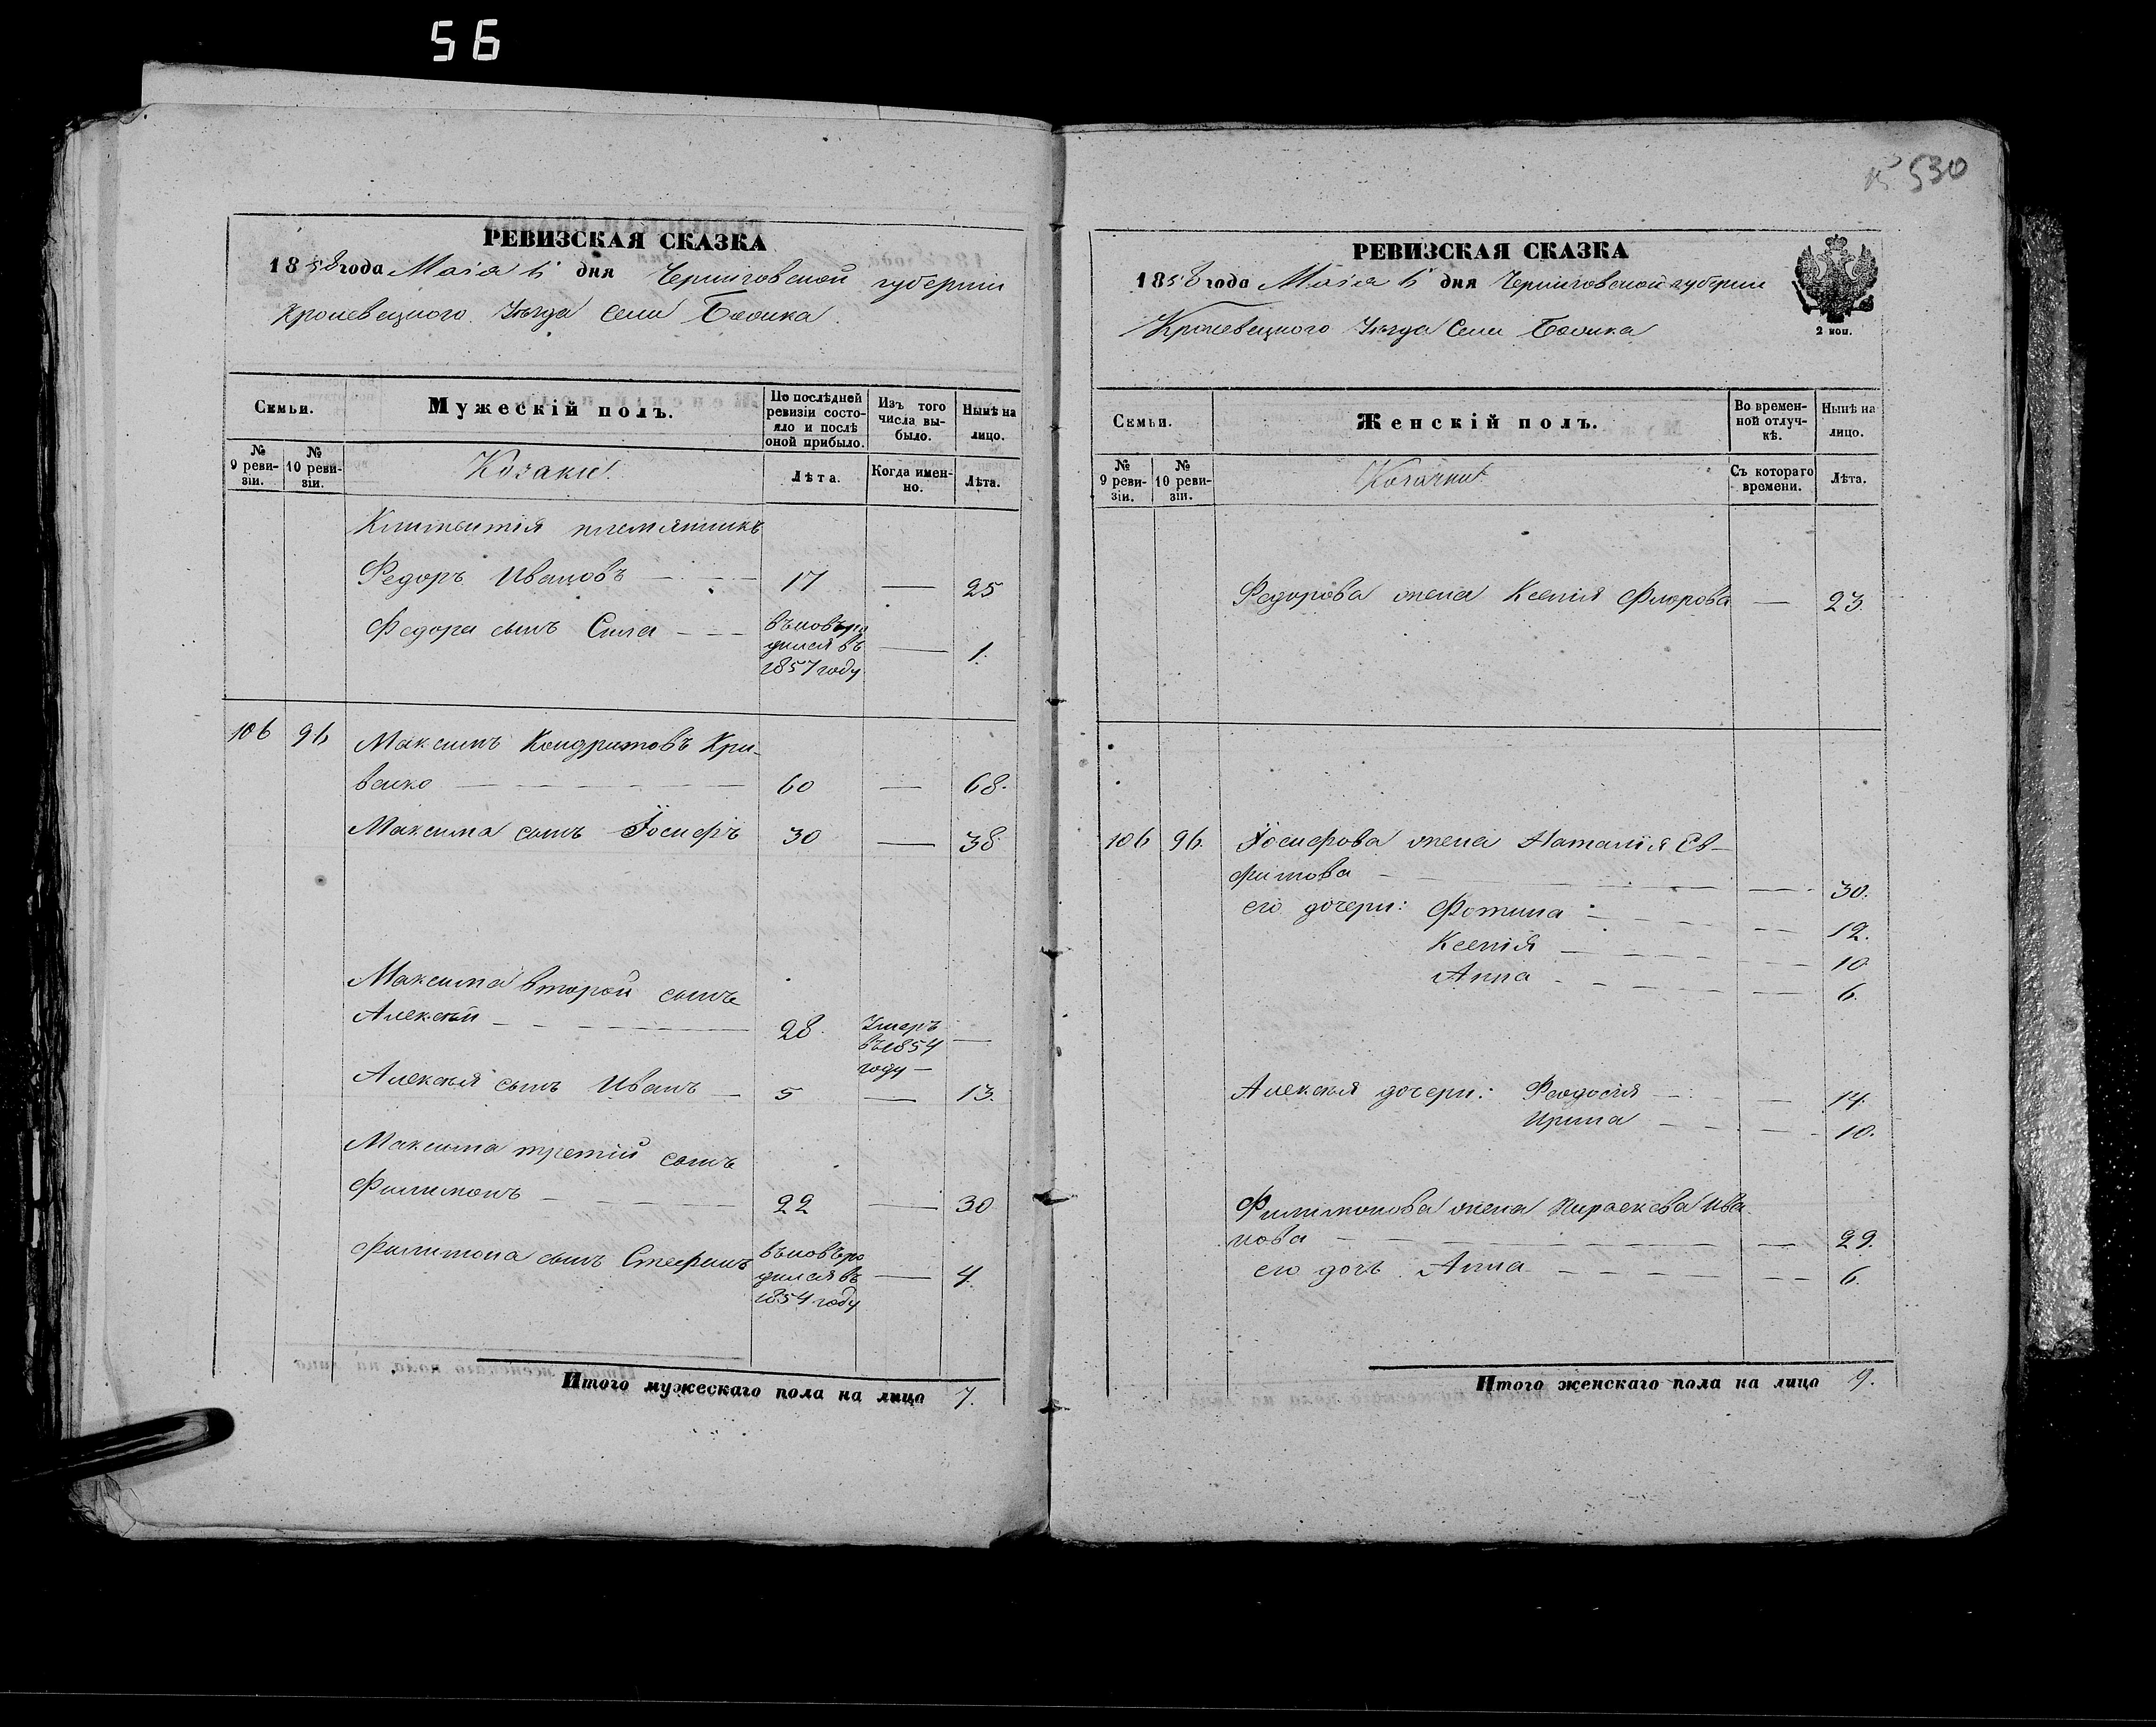 56
РЕВИЗСКАЯ СКАЗКА
1858 года Маія 6 дня Черниговской губерніи
Кролевецкого Уѣзда Села
Семьи.
Мужескій полъ.
По послѣдней ревизіи состояло и послѣ оной прибыло.
Изъ того числа выбыло.
Нынѣ на лицо.
№ 9 ревизіи.
№ 10 ревизіи.
Козаки
Лѣта.
Когда именно.
Лѣта.
племянникъ
Федоръ Ивановъ — 17 — 25
Федора сынъ Сила — вновь родился въ 1857 году — 1.
106 96 Максимъ Кондратовъ Кри-
венко — 60 — 68.
Максима сынъ Іосифъ 30 — 38
Максима второй сынъ
Алексѣй — 28. Умеръ въ 1854 году —
Алексѣя сынъ Иванъ — 5 — 13.
Максима третій сынъ
Филимонъ — 22 — 30
Филимона сынъ Стефанъ вновь родился въ 1854 году — 4.
Итого мужескаго пола на лицо 7.
530
РЕВИЗСКАЯ СКАЗКА
1858 года Маія 6 дня Черниговской губерніи
Кролевецкого Уѣзда Села
2 коп.
Семьи.
Женскій полъ.
Во временной отлучкѣ.
Нынѣ на лицо.
№ 9 ревизіи.
№ 10 ревизіи.
Козачки
Съ котораго времени.
Лѣта.
Федорова жена Ксенія Флорова — 23.
106 96. Іосифова жена Наталія Ев-
фимова — 30.
его дочери: Фотина — 12.
Ксенія — 10
Анна — 6.
Алексѣя дочери: Феодосія — 14.
Ирина — 10.
Филимонова жена Параскева Ива
нова — 29.
его дочь Анна — 6.
Итого женскаго пола на лицо 9.